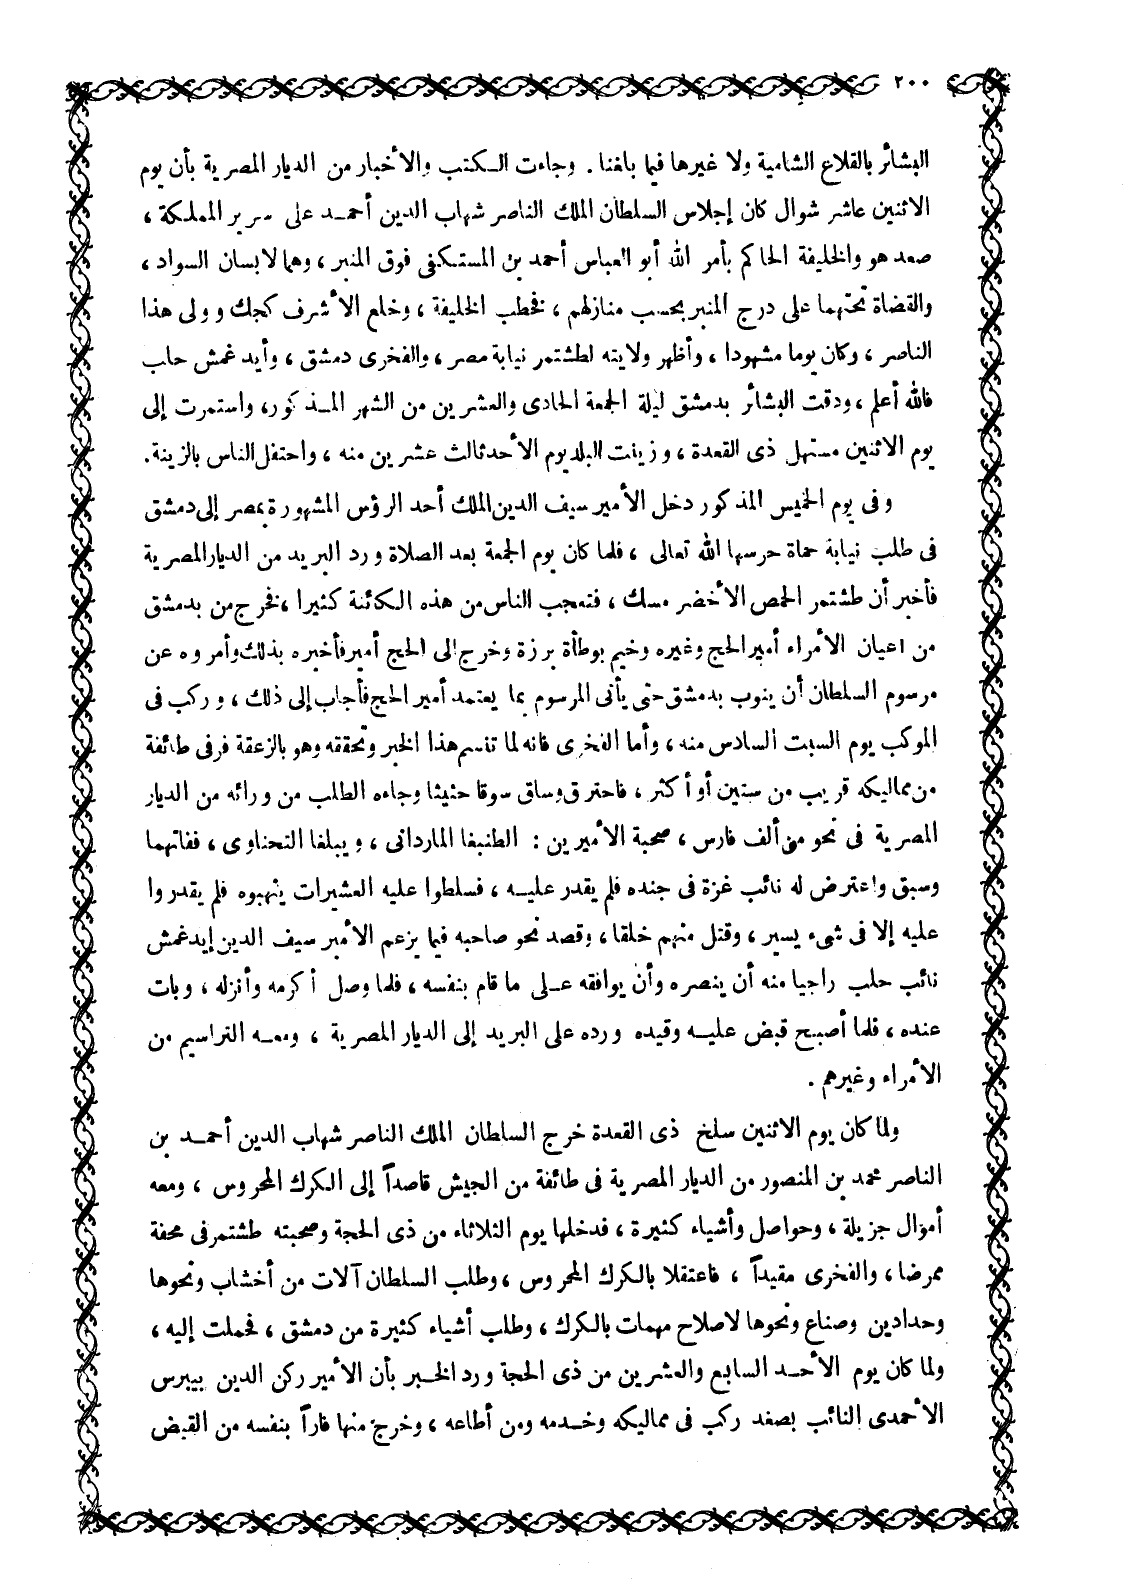 ٢٠٠
البشائر بالقلاع الشامية ولا غيرها فيما بلغنا . وجاءت الكتب والأخبار من الديار المصرية بأن يوم
الاثنين عاشر شوال كان إجلاس السلطان الملك الناصر شهاب الدين أحمد على سرير المملكة ،
صعد هو والخليفة الحاكم بأمر الله أبو العباس أحمد بن المستكفى فوق المنبر ، وهما لابسان السواد ،
والقضاة تحتهما على درج المنبر بحسب منازلهم ، فخطب الخليفة ، وخلع الأشرف كجك وولى هذا
الناصر ، وكان يوما مشهودا ، وأظهر ولايته لطشتمر نيابة مصر ، والفخرى دمشق ، وأيدغمش حلب
فالله أعلم ، ودقت البشائر بدمشق ليلة الجمعة الحادى والعشرين من الشهر المذكور، واستمرت إلى
يوم الاثنين مستهل ذى القعدة ، وزينت البلد يوم الأحد ثالث عشرين منه ، واحتفل الناس بالزينة.
وفى يوم الخميس المذكور دخل الأمير سيف الدين الملك أحد الرؤس المشهورة بمصر إلى دمشق
فى طلب نيابة حماة حرسها الله تعالى ، فلما كان يوم الجمعة بعد الصلاة ورد البريد من الديار المصرية
فأخبر أن طشتمر الحمص الأخضر مسك ، فتعجب الناس من هذه الكائنة كثيرا ، فخرج من بدمشق
من اعيان الأمراء أمير الحج وغيره وخيم بوطأة برزة وخرج إلى الحج أمير فأخبره بذلك وأمروه عن
مرسوم السلطان أن ينوب بدمشق حتى يأتى المرسوم بما يعتمد أمير الحج فأجاب إلى ذلك ، وركب فى
الموكب يوم السبت السادس منه ، وأما الفخرى فانه لما تنسم هذا الخبر وتحققه وهو بالزعقة فر فى طائفة
من مماليكه قريب من ستين أو أكثر ، فاحترق وساق سوقا حثيثا وجاءه الطلب من ورائه من الديار
المصرية فى نحو من ألف فارس ، صحبة الأميرين : الطنبغا الماردانى ، ويبلغا التحناوى ، ففاتهما
وسبق واعترض له نائب غزة فى جنده فلم يقدر عليه ، فسلطوا عليه العشيرات ينهبوه فلم يقدروا
عليه إلا فى شىء يسير ، وقتل منهم خلقا ، وقصد نحو صاحبه فيما يزعم الأمير سيف الدين إيدغمش
نائب حلب راجيا منه أن ينصره وأن يوافقه على ما قام بنفسه ، فلما وصل أكرمه وأنزله ، وبات
عنده ، فلما أصبح قبض عليه وقيده ورده على البريد إلى الديار المصرية ، ومعه التراسيم من
الأمراء وغيرهم .
ولما كان يوم الاثنين سلخ ذى القعدة خرج السلطان الملك الناصر شهاب الدين أحمد بن
الناصر محمد بن المنصور من الديار المصرية فى طائفة من الجيش قاصداً إلى الكرك المحروس ، ومعه
أموال جزيلة ، وحواصل وأشياء كثيرة ، فدخلها يوم الثلاثاء من ذى الحجة وصحبته طشتمر فى محفة
ممرضا ، والفخرى مقيداً ، فاعتقلا بالكرك المحروس ، وطلب السلطان آلات من أخشاب ونحوها
وحدادين وصناع ونحوها لاصلاح مهمات بالكرك ، وطلب أشياء كثيرة من دمشق ، فحملت إليه ،
ولما كان يوم الأحد السابع والعشرين من ذى الحجة ورد الخبر بأن الأمير ركن الدين بيبرس
الأحمدى النائب بصفد ركب فى مماليكه وخدمه ومن أطاعه ، وخرج منها فاراً بنفسه من القبض